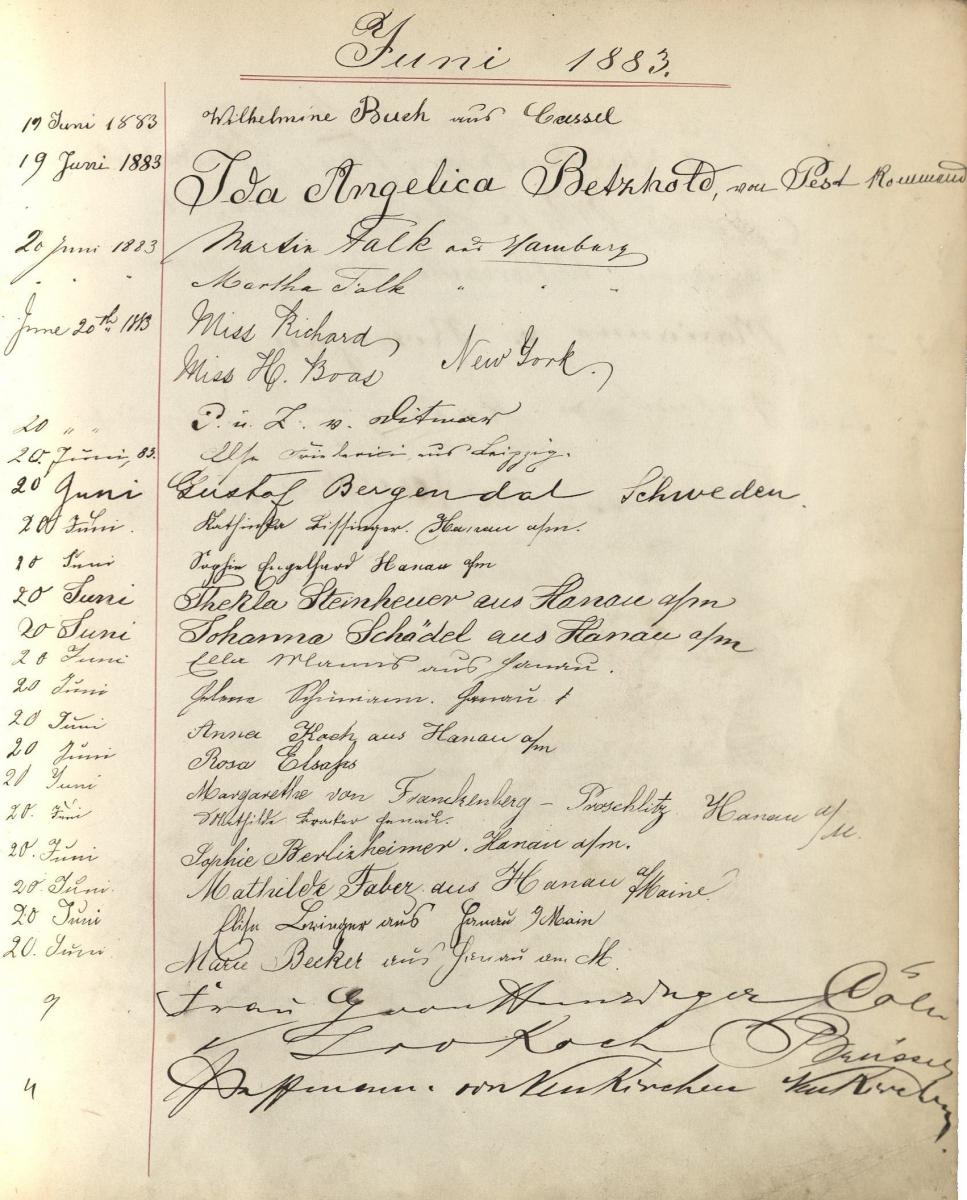 Juni 1883.
19 Juni 1883 Wilhelmine Buch aus Cassel
19 Juni 1883 Ida Angelica Betzhold, von Pest kommend
20 Juni 1883 Martin Falk aus Hamburg
" " Martha Falk " " "
June 20th 1883 Miss Richard
Miss H. Boas New York.
20 " " P. u. L. v. Ditmar
20. Juni, 83. Else aus Leipzig.
20 Juni Gustaf Bergendal Schweden
20 Juni. Kathinka Lissinger. Hanau a/m.
20 Juni Sophie Engelhard Hanau a/m
20 Juni Thekla Steinheuer aus Hanau a/m
20 Juni Johanna Schädel aus Hanau a/m
20 Juni Ella aus Hanau.
20 Juni Helene Schümann. Hanau
20 Juni Anna Koch aus Hanau a/m
20 Juni Rosa Elsass
20 Juni Margarethe von Franckenberg - Proschlitz Hanau a/M.
20. Juni Mathilde Hanau.
20. Juni Sophie Berlizheimer. Hanau a/m.
20. Juni. Mathilde Faber aus Hanau a/Maine
20 Juni Elise aus Hanau a/Main
20. Juni Marie Becker aus Hanau am M.
Frau Cöln
Leo Koch Brüssel
Hoffmann. von Neukirchen Neukirchen